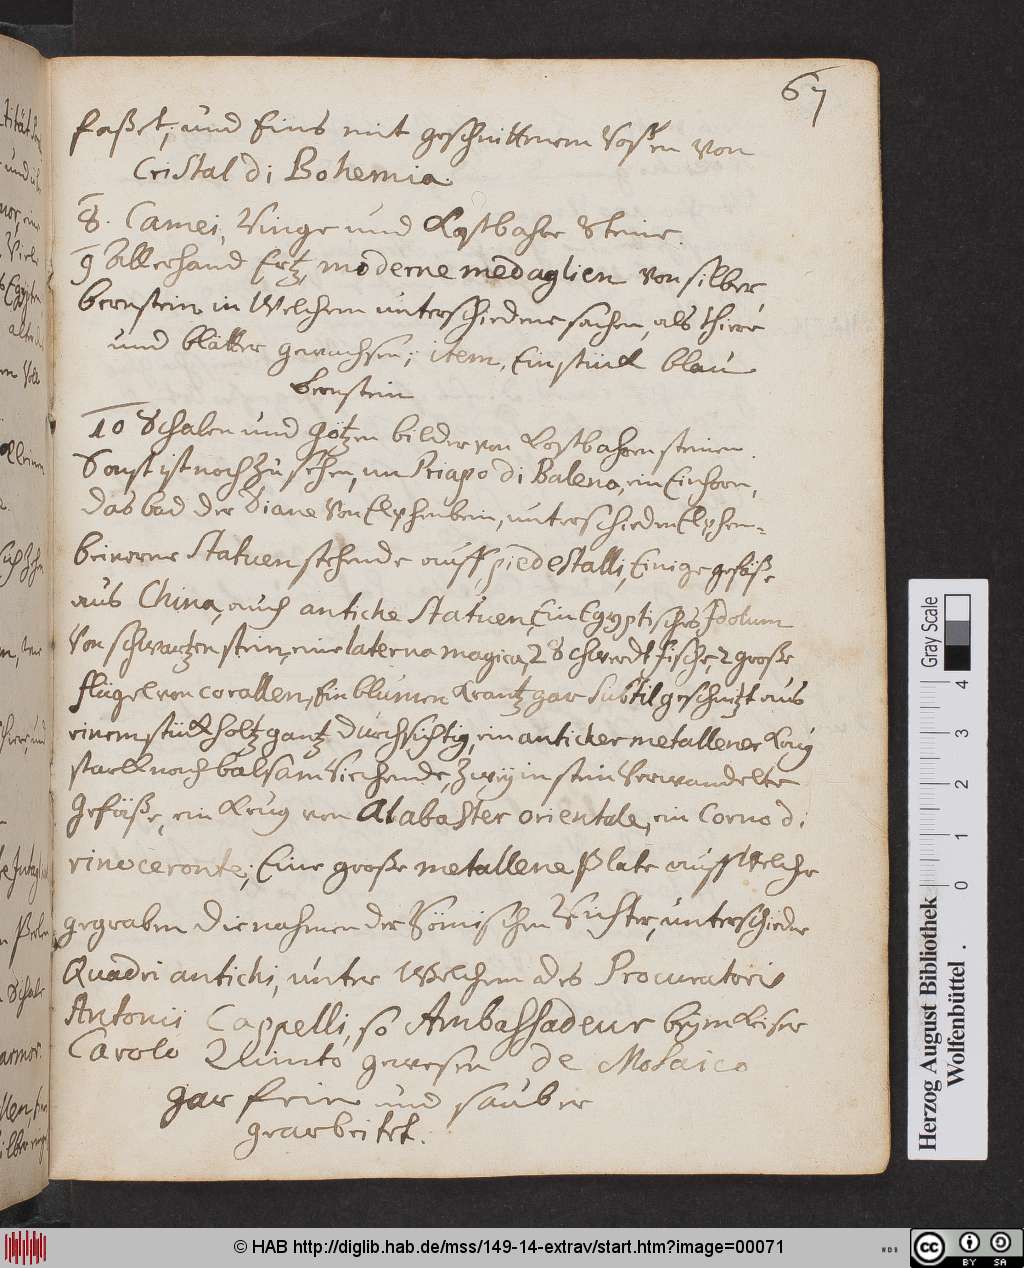 67
faßet, und Eins mit geschnittenem Vasen von
Cristal di Bohemia.
8. Camei, Ringe und Kostbahre Steine.
9 Allerhand Ertz, moderne medaglien von silber,
bernstein in Welchem unterschiedene sachen, als thiere
und blätter gewachsen; item, Ein stück blau
bernstein
10 Schalen und götzen bilder von Kostbahren steinen.
Sonst ist noch zu sehen, un Priapo di Balena, ein Einhorn,
das bad der Diane von Elphenbein, unterschieden Elphen=
beinerne Statuen stehende auff piedestalli, Einige gefäße
aus China, auch antiche Statuen, Ein Egyptisches Idolum
von schwartzen stein, eine laterna magica, 2 Schwerdt fische 2 große
flügel von corallen, Ein blumen Krantz gar subtil geschnitzt aus
einem stück holtz gantz durchsichtig, ein anticker metallener Krug
starck nach balsam riechende, zwey in stein verwandelte
gefäße, ein Krug von Alabaster orientale, ein Corno di
rinoceronte; Eine große metallene Plate auff Welche
gegraben die nahmen der Römischen Richter, unterschiedene
Quadri antichi, unter Welchem des Procuratoris
Antonii Cappelli, so Ambassadeur beym Keiser
Carolo Quinto gewesen de Mosaico
gar fein und sauber
gearbeitet.
Herzog August Bibliothek
Wolfenbüttel
Gray Scale
0 1 2 3 4
© HAB http://diglib.hab.de/mss/149-14-extrav/start.htm?image=00071
WDB
cc BY SA